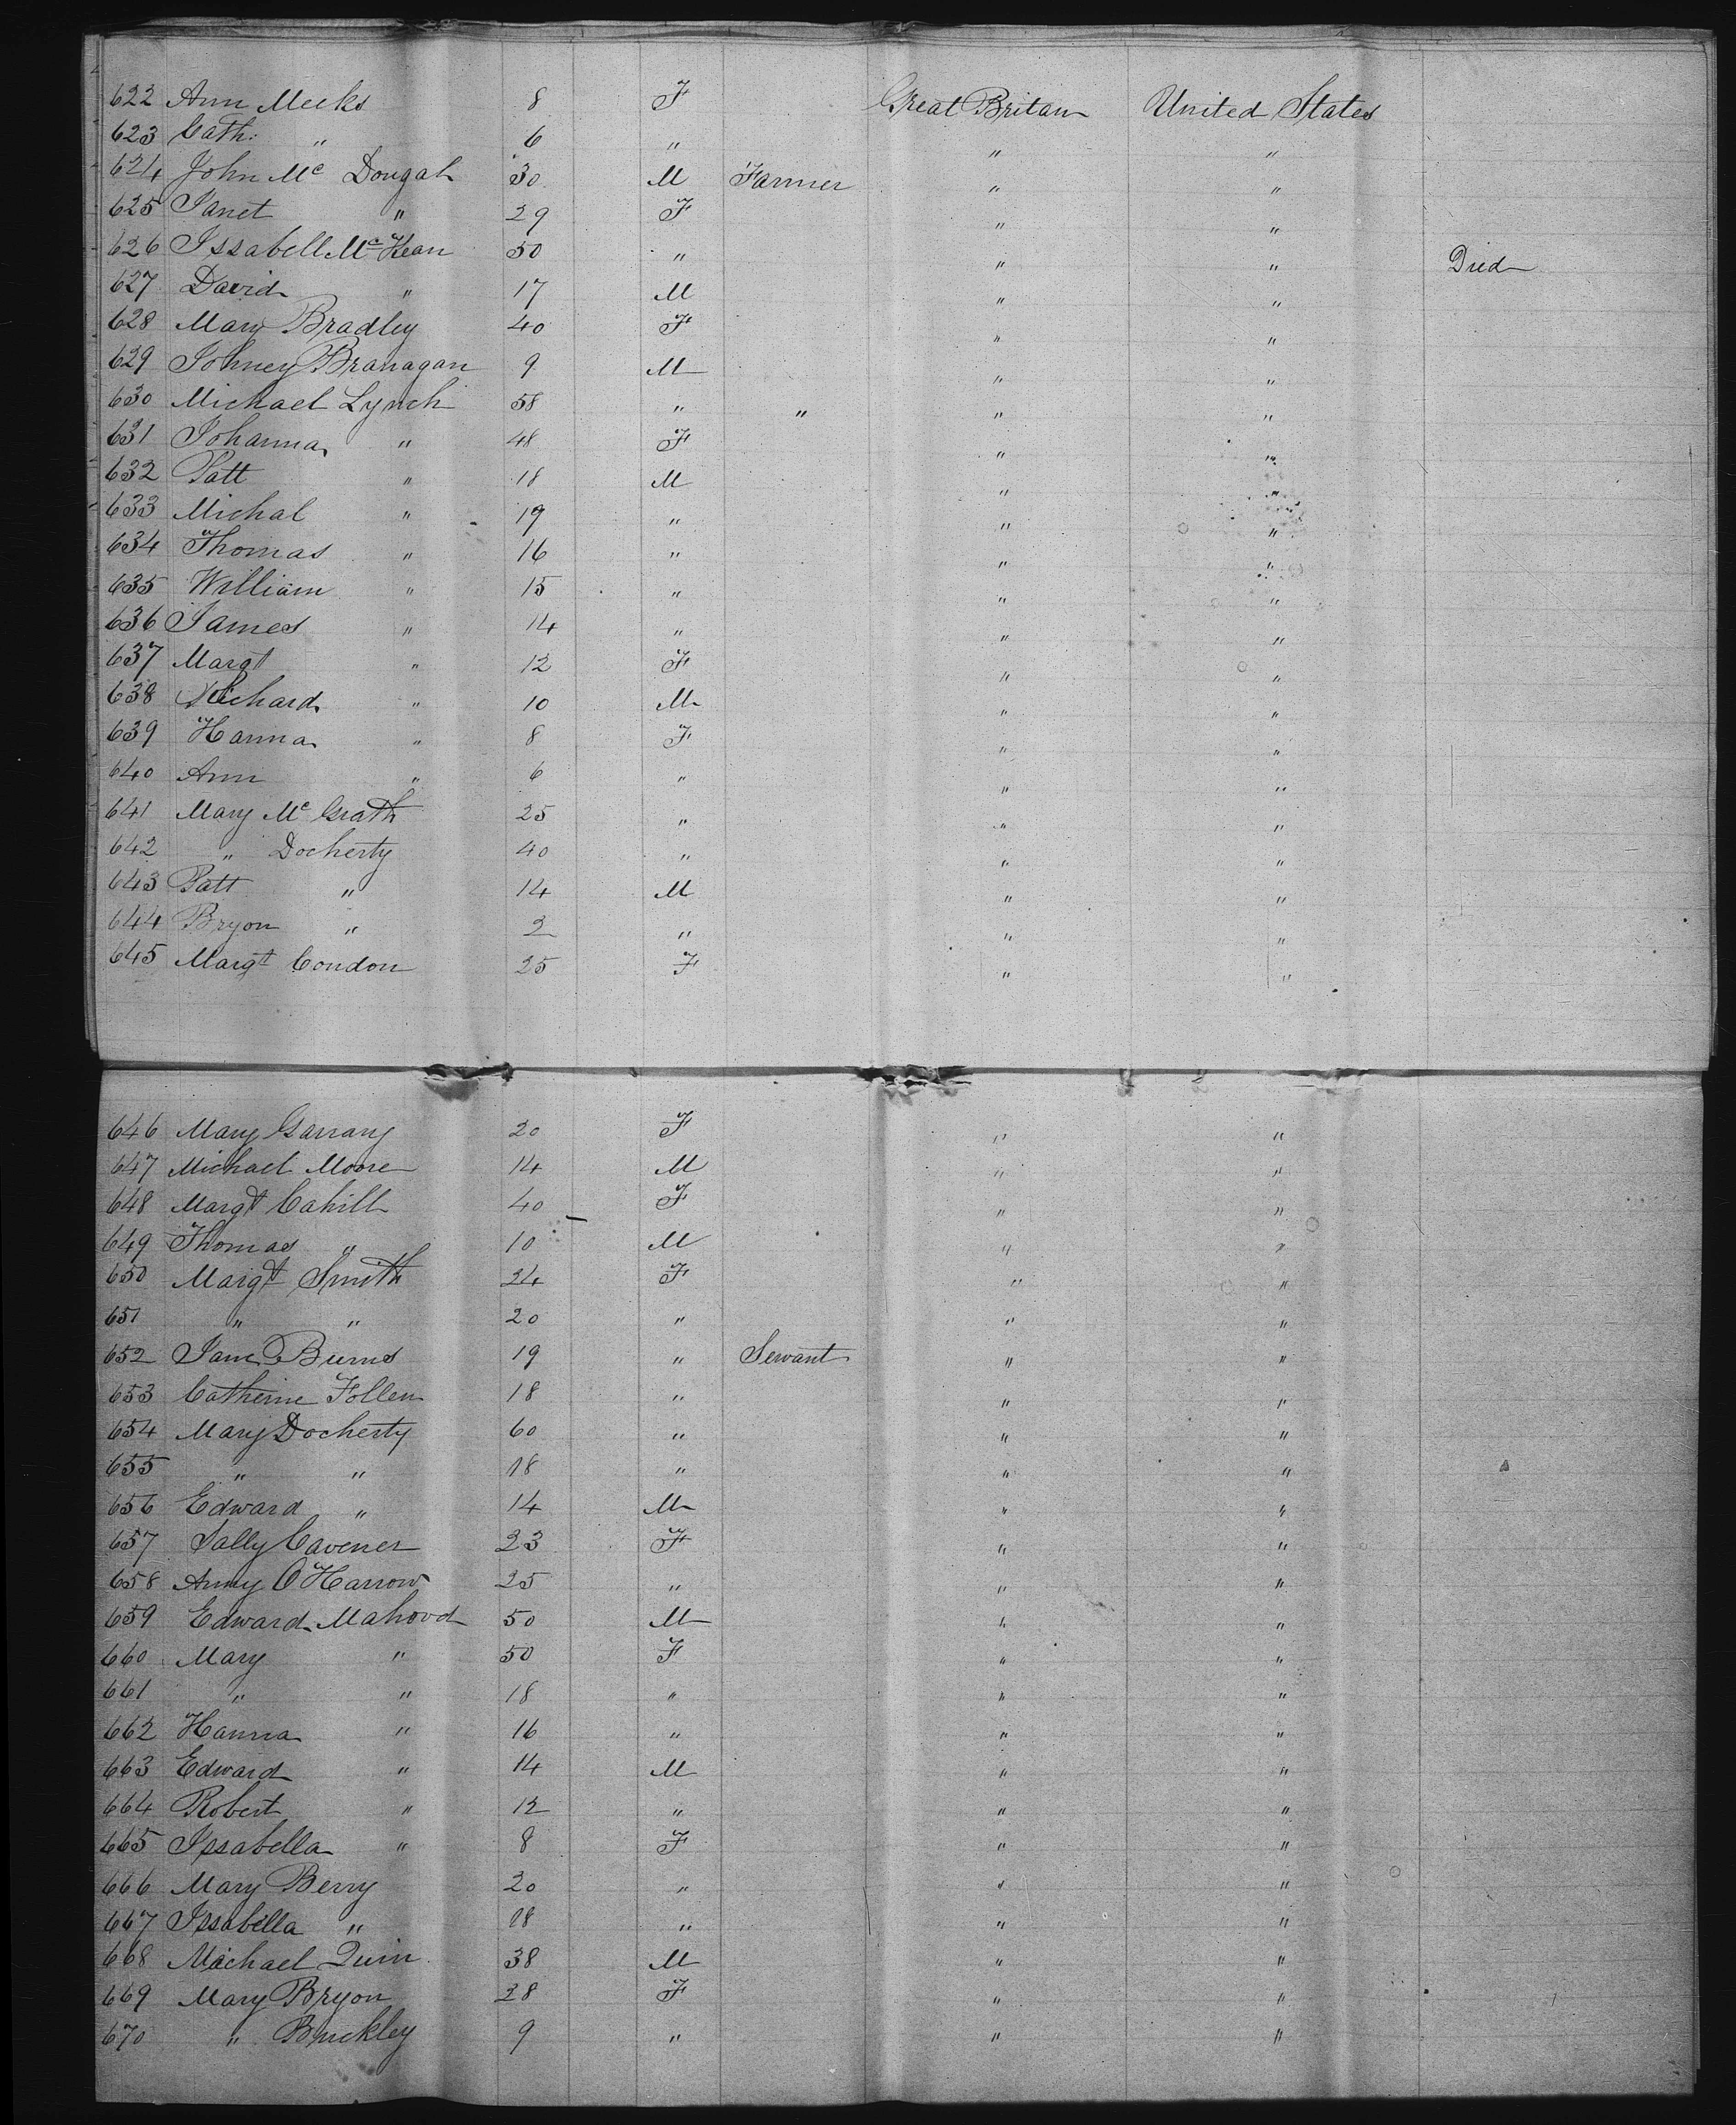 622 Ann Meeks 8 F Great Britan United States
623 Cath: " 6 " " "
624 John Mc Dougal 30 M Farmer " "
625 Janet " 29 F " "
626 Issabell McKean 50 " " " Died
627 David " 17 M " "
628 Mary Bradley 40 F " "
629 Johney Branagan 9 M " "
630 Michael Lynch 58 " " " "
631 Johanna " 48 F " "
632 Patt " 18 M " "
633 Michal " 19 " " "
634 Thomas " 16 " " "
635 William " 15 " " "
636 James " 14 " " "
637 Margt " 12 F " "
638 Richard " 10 M " "
639 Hanna " 8 F " "
640 Ann " 6 " " "
641 Mary Mc Grath 25 " " "
642 " Docherty 40 " " "
643 Patt " 14 M " "
644 Bryon " 2 " " "
645 Margt Condon 25 F " "
646 Mary Garrary 20 F " "
647 Michael Moore 14 M " "
648 Margt Cahill 40 F " "
649 Thomas " 10 M " "
650 Margt Smith 24 F " "
651 " " 20 " " "
652 Jane Burns 19 " Servant " "
653 Catherine Follen 18 " " "
654 Mary Docherty 60 " " "
655 " " 18 " " "
656 Edward " 14 M " "
657 Sally Cavener 23 F " "
658 Anny O'Harrow 25 " " "
659 Edward Mahood 50 M " "
660 Mary " 50 F " "
661 " " 18 " " "
662 Hanna " 16 " " "
663 Edward " 14 M " "
664 Robert " 12 " " "
665 Issabella " 8 F " "
666 Mary Berry 20 " " "
667 Issabella " 18 " " "
668 Michael Quin 38 M " "
669 Mary Bryon 28 F " "
670 " Buckley 9 " " "